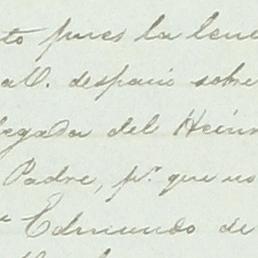 to pues la
al. despacio sobre
legada del
Padre, pr. que no
Edmundo de